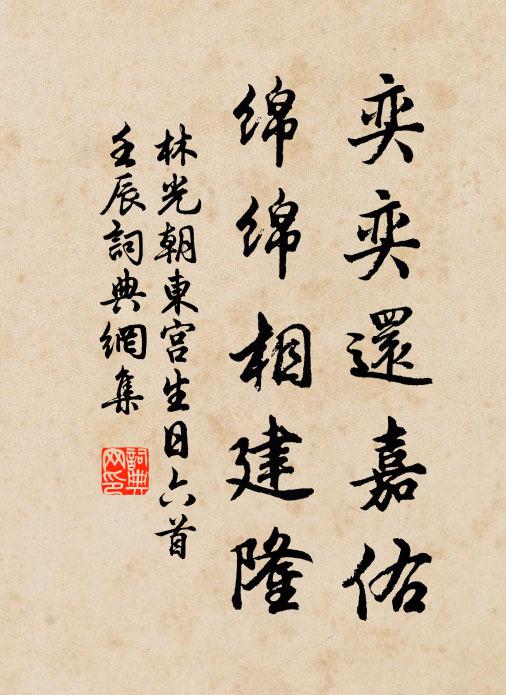 奕奕還嘉佑
綿綿相建隆
林光朝東宮生日六首
壬辰詞典網集
詞典网印